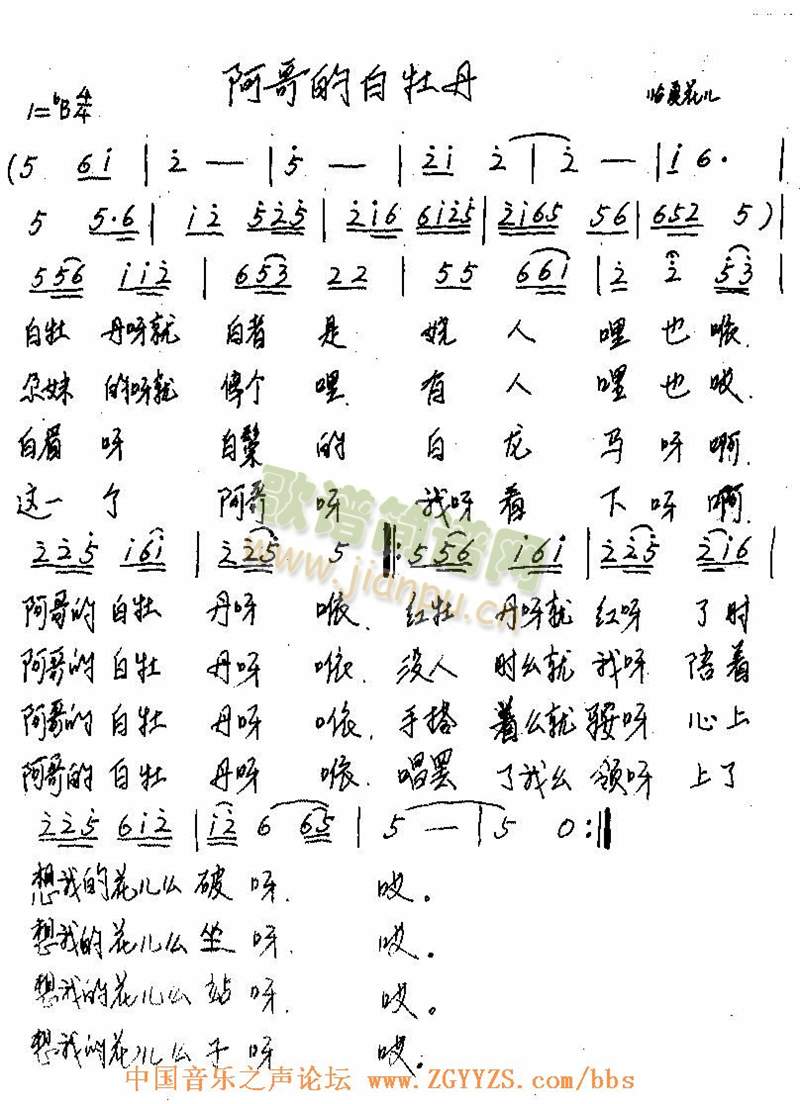 阿哥的白牡丹
1=ᵇB 4/4
临夏花儿
(5 6i | 2 — | 5 — | 2i 2 | 2 — | i 6· |
5 5·6 | i2 525 | 2i6 6i25 | 2i65 56 | 652 5) |
556 ii2 | 653 22 | 55 66i | 2 2 53 |
白牡 丹呀就 白者 是 娆 人 哩 也 喉.
尕妹 的呀就 俦个 哩 有 人 哩 也 哎.
白眉 呀 白鬃 的 白 龙 马 呀 啊.
这一 个 阿哥 呀 我呀 看 下 呀 啊.
225 i6i | 225 5 :556 i6i | 225 2i6 |
阿哥的 白牡 丹呀 咻. 红牡 丹呀就 红呀 了时
阿哥的 白牡 丹呀 咻. 没人 时么就 我呀 陪着
阿哥的 白牡 丹呀 咻. 手搭 着么就 鞍呀 心上
阿哥的 白牡 丹呀 咻. 唱罢 了我么 领呀 上了
225 6i2 | i2 6 65 | 5 — | 5 0 :
想我的 花儿么 破 呀. 哎。
想我的 花儿么 坐 呀. 哎。
想我的 花儿么 站 呀. 哎。
想我的 花儿么 子 呀 哎.
歌谱简谱网
www.jianpu.cn
中国音乐之声论坛 www.ZGYYZS.com/bbs